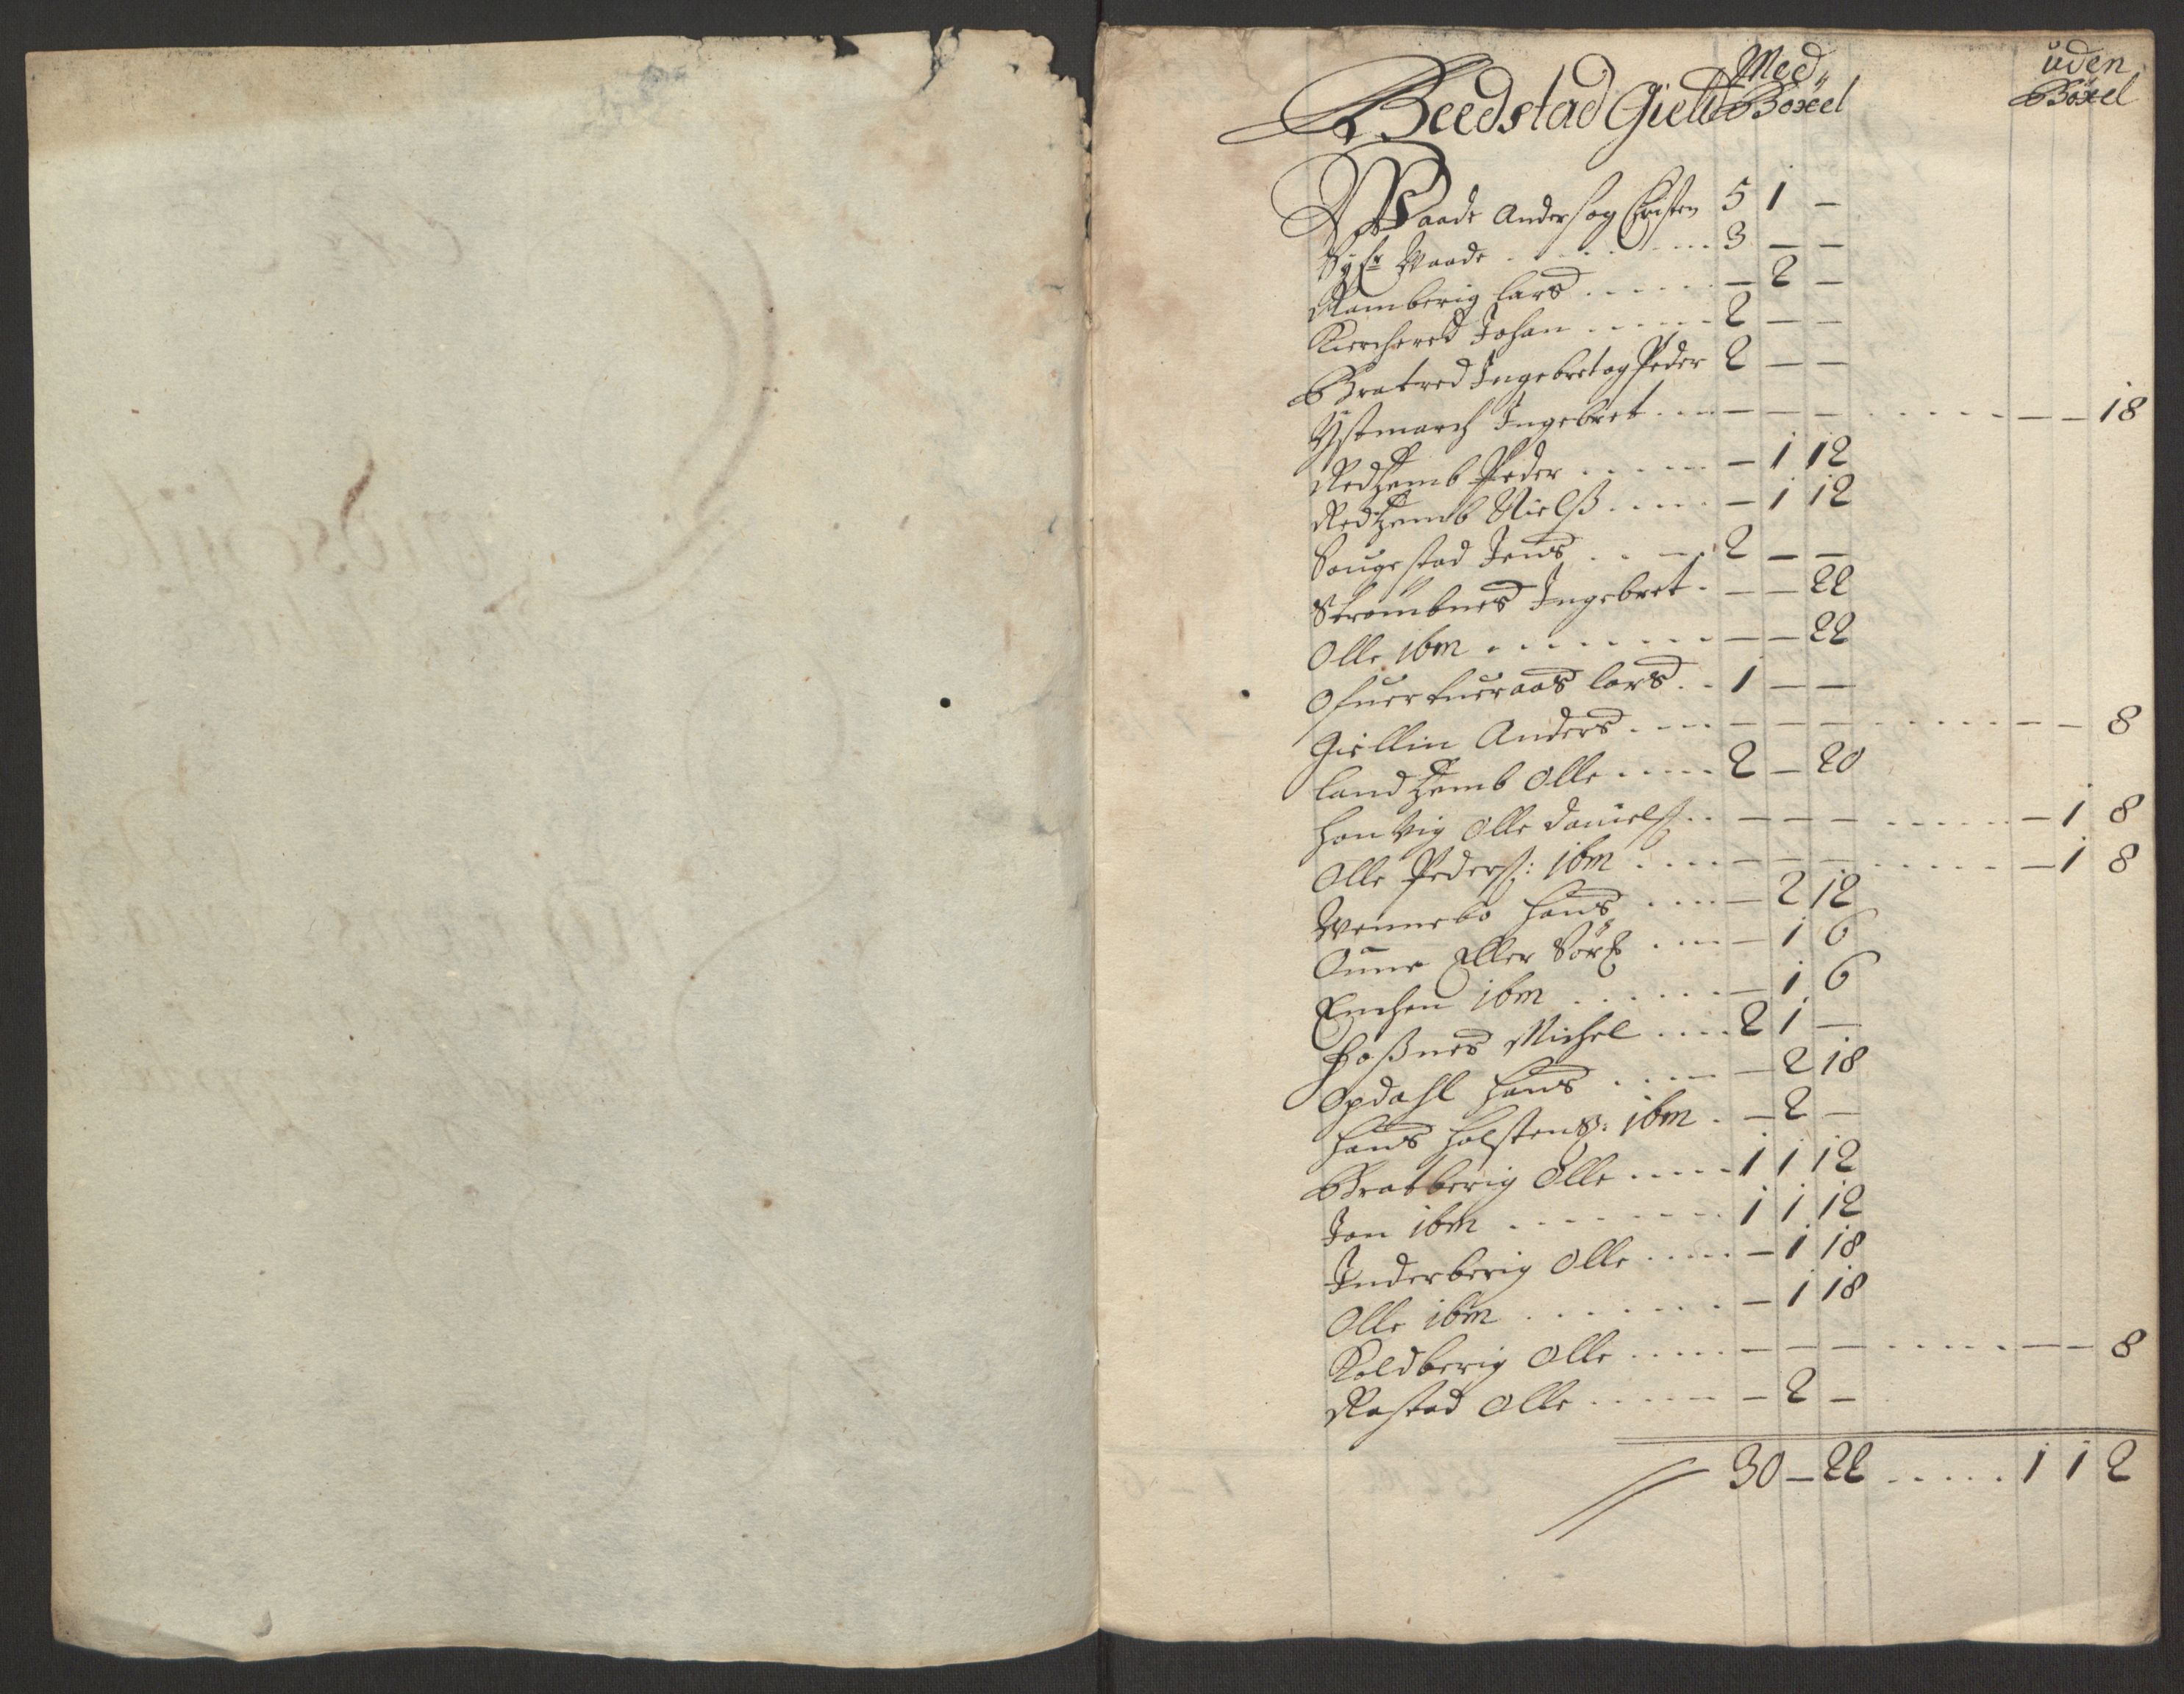 Beedstad Gield Med Böxel uden Böxel
Waade Anders og Christen 5 1 —
Sÿr Waade . . . . . . 3 — —
Ramberig Lars . . . . . — 2 —
Kircherød Johan . . . . . 2 — —
Bratred Ingebret og Peder 2 — —
Ÿstmarch Ingebret . . . — — — . . . . . . — — 18
Rødhemb Peder . . . . . — 1 12
Rødhemb Nielß . . . . — 1 12
Saugestad Jens . . . . 2 — —
Strømbnes Ingebret . — — 22
Olle ibm . . . . . . . — — 22
Ofuer Tueraas Lars . . 1 — —
Giellin Anders . . . . — — — . . . . . . — — 8
Landhemb Olle . . . . 2 — 20
Hontvig Olle Daniels: . . — — — . . . . . . — 1 8
Olle Peders: ibm . . . . — — — . . . . . . — 1 8
Wennebo Hans . . . . — 2 12
Aune Eller . . . . — 1 6
Enchen ibm . . . . . . — 1 6
Hoßnes Michel . . . . 2 1 —
Opdahl Hans . . . . — 2 18
Hans Holstens: ibm . — 2 —
Bratberig Olle . . . . . 1 1 12
Jon ibm . . . . . . . . 1 1 12
Inderberig Olle . . . . . — 1 18
Olle ibm . . . . . . . — 1 18
Koldberig Olle . . . . . — — — . . . . . . — — 8
Røstad Olle . . . . . — 2 —
30 — 22 . . . . . 1 1 2